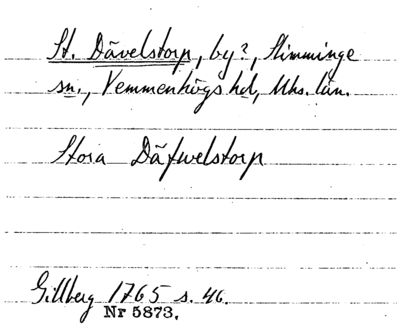 St. Dävelstorp, by?, Slimminge
sn., Vemmenhögs hd, Mhs. län.
Stora Däfwelstorp
Gillberg 1765 s. 46.
Nr 5873.